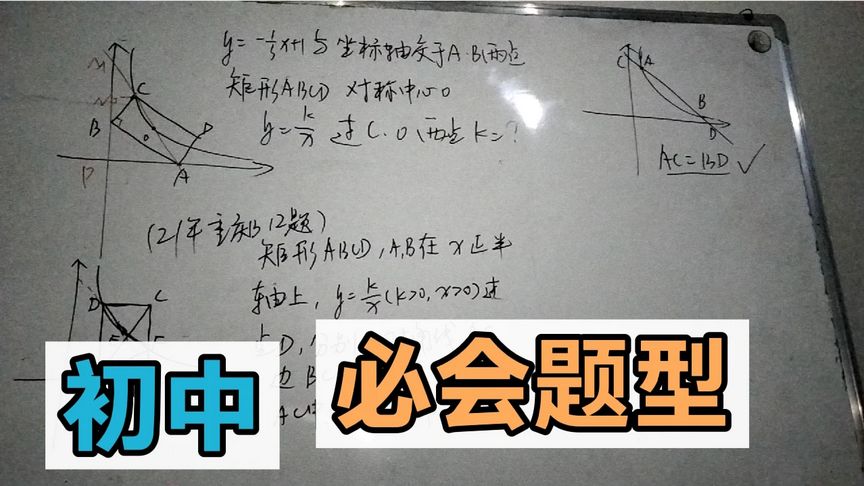 y=-1/3x+1与坐标轴交于A.B两点
矩形ABCD 对称中心O
y=k/x 过C.O两点 K=?
M
C
B
O
D
P
A
C A
B
D
AC=BD ✓
(21年重庆B12题)
矩形ABCD,A,B在x正半
轴上, y=k/x(k>0,x>0)过
D
C
E
点D,
边B
AC
初中
必会题型